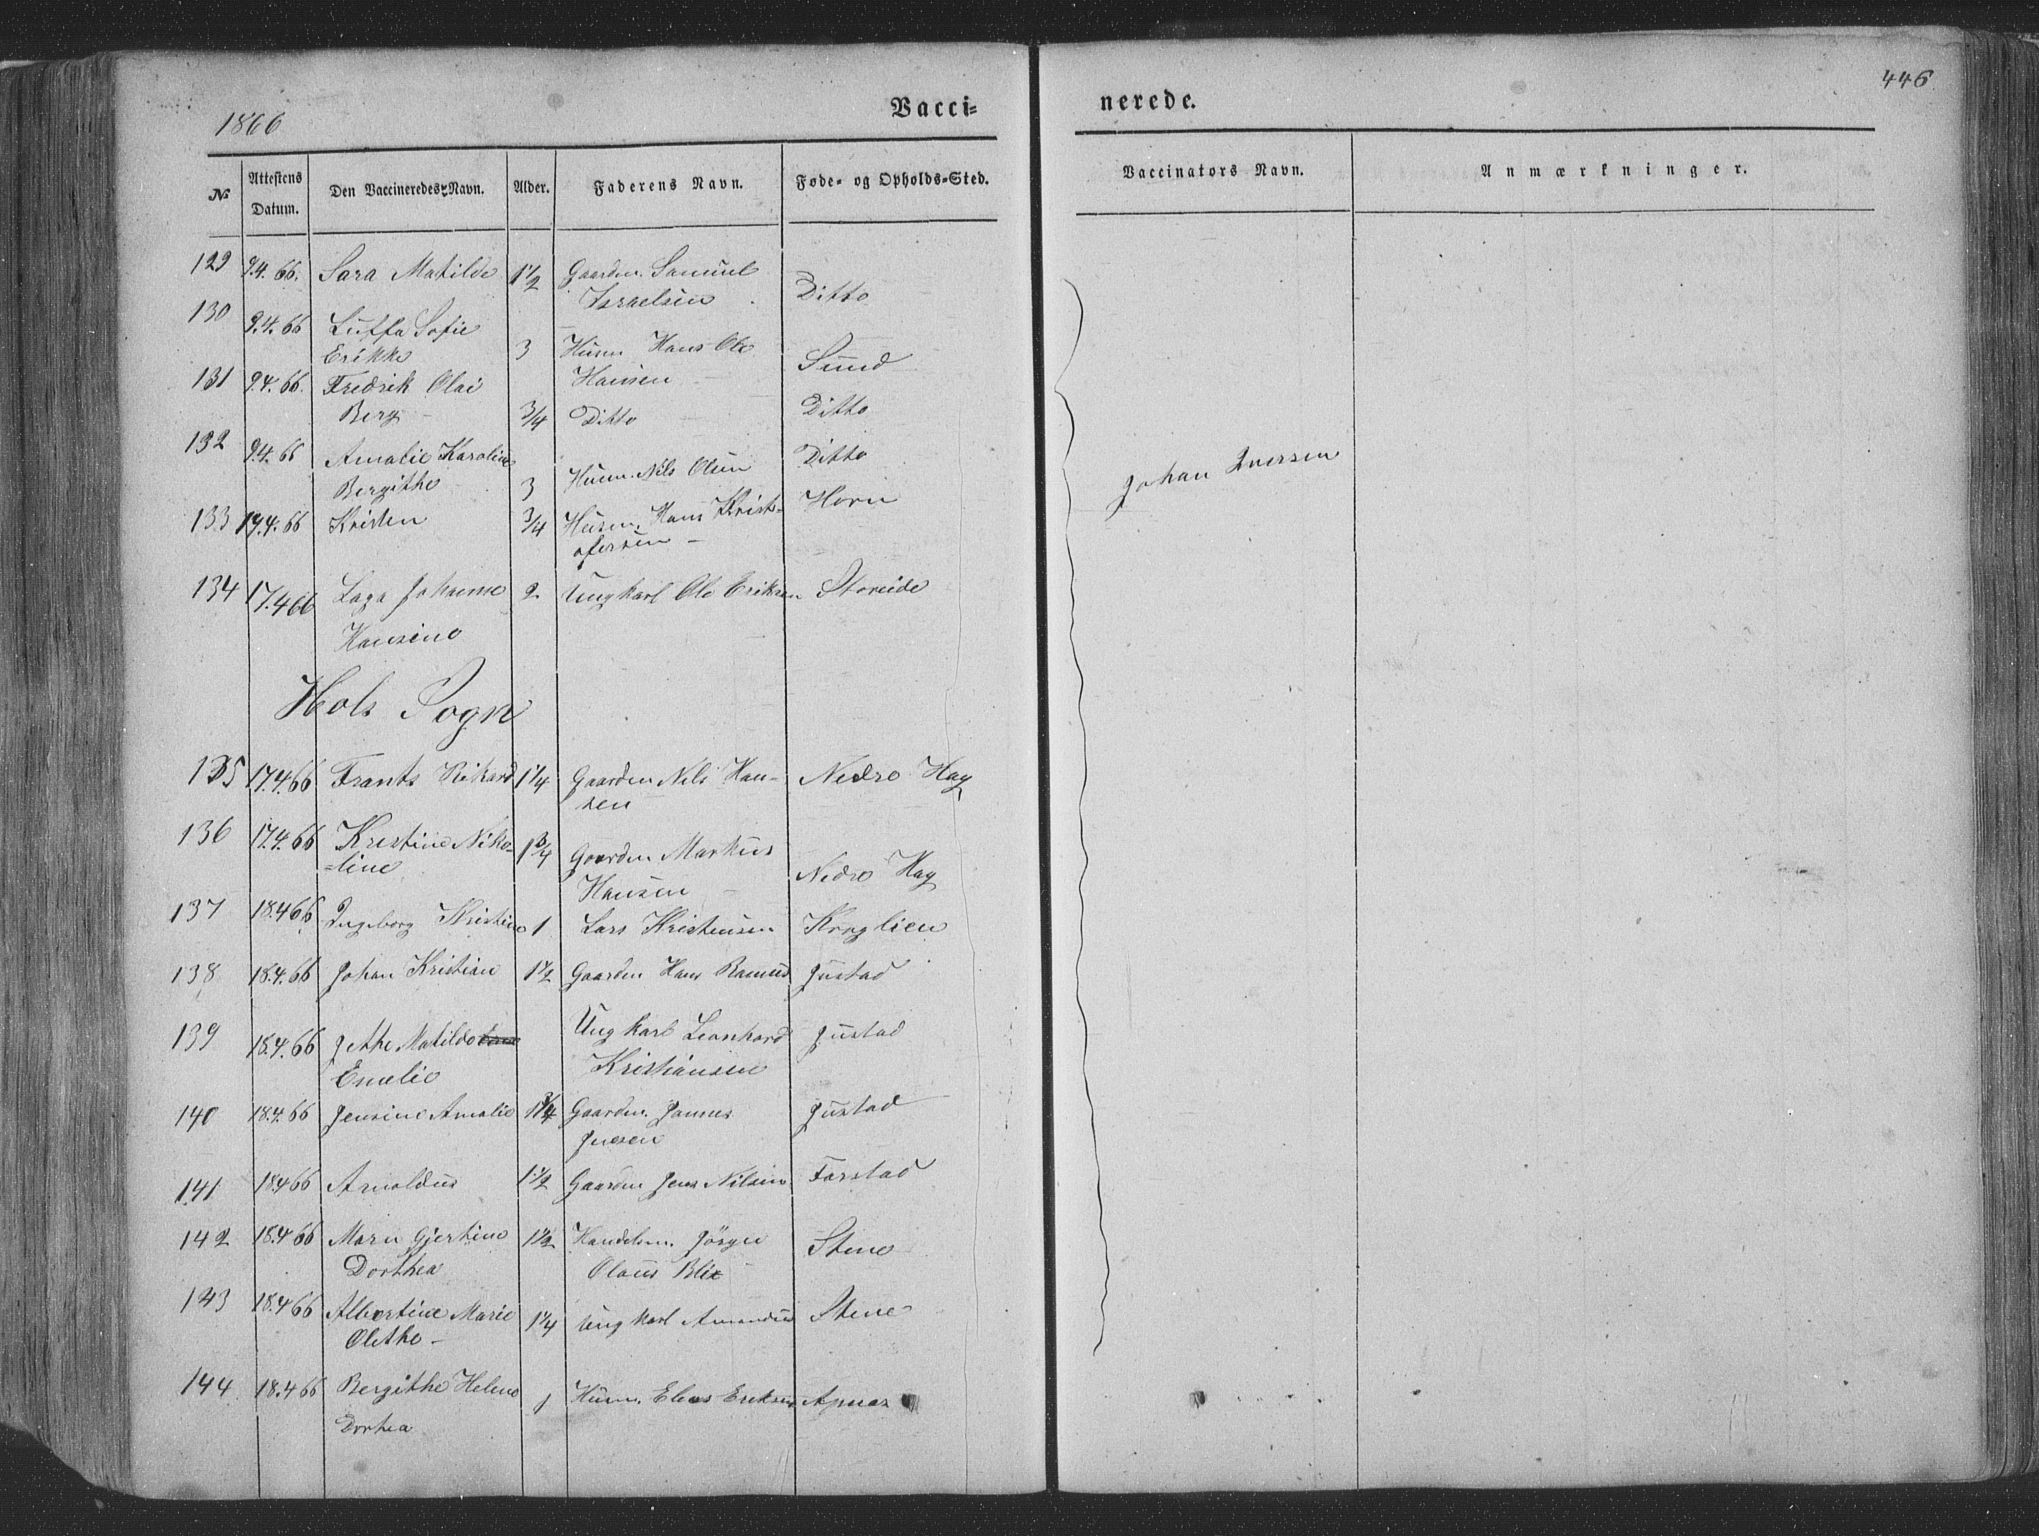 446
1866
Vacci= nerede.
№ Attestens Datum. Den Vaccineredes Navn. Alder. Faderens Navn. Føde- og Opholds-Sted. Vaccinators Navn. Anmærkninger.
129 9.4.66. Sara Matilde 1 1/2 Gaardm. Samuel
Israelsen Ditto
130 9.4.66 Sofie
Erikke 3 Husm Hans Ole
Hansen Sund
131 9.4.66. Fredrik Olai
Berg 3/4 Ditto Ditto
132 9.4.66 Amalie Karoline
Bergithe 3 Husm. Nils Olsen Ditto
133 17.4.66 Kristen 3/4 Husm. Hans Krist-
ofersen Horn
Johan Iversen
134 17.4.66 Johanne 2 Ungkarl Ole Eriksen Storeide
Hansine
Hols Sogn
135 17.4.66 Frants Rikard 1 1/4 Gaardm Nils Han-
sen Nedre Hag
136 17.4.66 Kristine Niko-
-line 1 3/4 Gaardm Markus
Hansen Nedre Hag
137 18.4.66 Ingeborg Kristine 1 Lars Kristensen
138 18.4.66 Johan Kristian 1 1/2 Gaardm Hans Justad
139 18.4.66 Jethe Matilde
Emelie Ungkarl Leonhard
Kristiansen Justad
140 18.4.66 Jensine Amalie Gaardm.
Justad
141 18.4.66 Arnoldus 1 1/2 Gaardm Jens Nilsen Farstad
142 18.4.66 Maren Gjertine
Dorthea 1 1/2 Handelsm. Jörgen
Olaus Blix Stene
143 18.4.66 Albertine Marie
Olethe 1 1/4 Ungkarl Amandus Stene
144 18.4.66 Bergithe Helene
Dorthea 1 Husm. Elias Eriksen